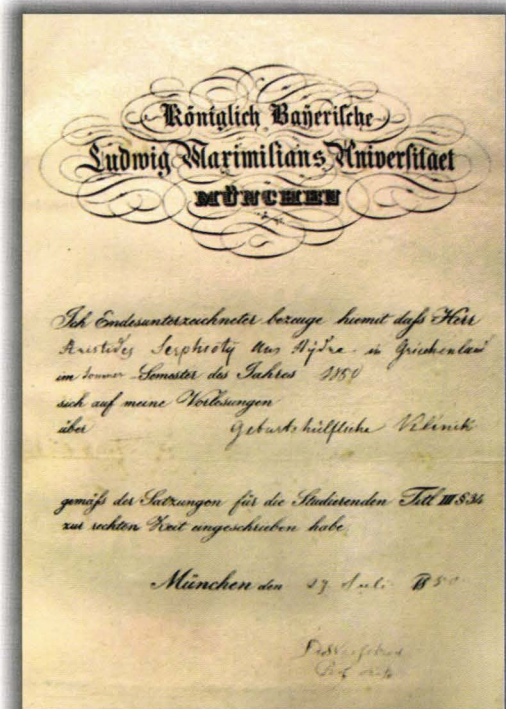 Königlich Bayerische
Ludwig Maximilians Universitaet
MÜNCHEN
Ich Endesunterzeichneter bezeuge hiemit daſs Herr
Aristides aus Hydra in Griechenland
im Sommer Semester des Jahres 1850
sich auf meine Vorlesungen
über Geburtshülfliche Klinik
gemäſs der Satzungen für die Studierenden Titl III § 34
zur rechten Zeit eingeschrieben habe
München den 27. Juli 1850